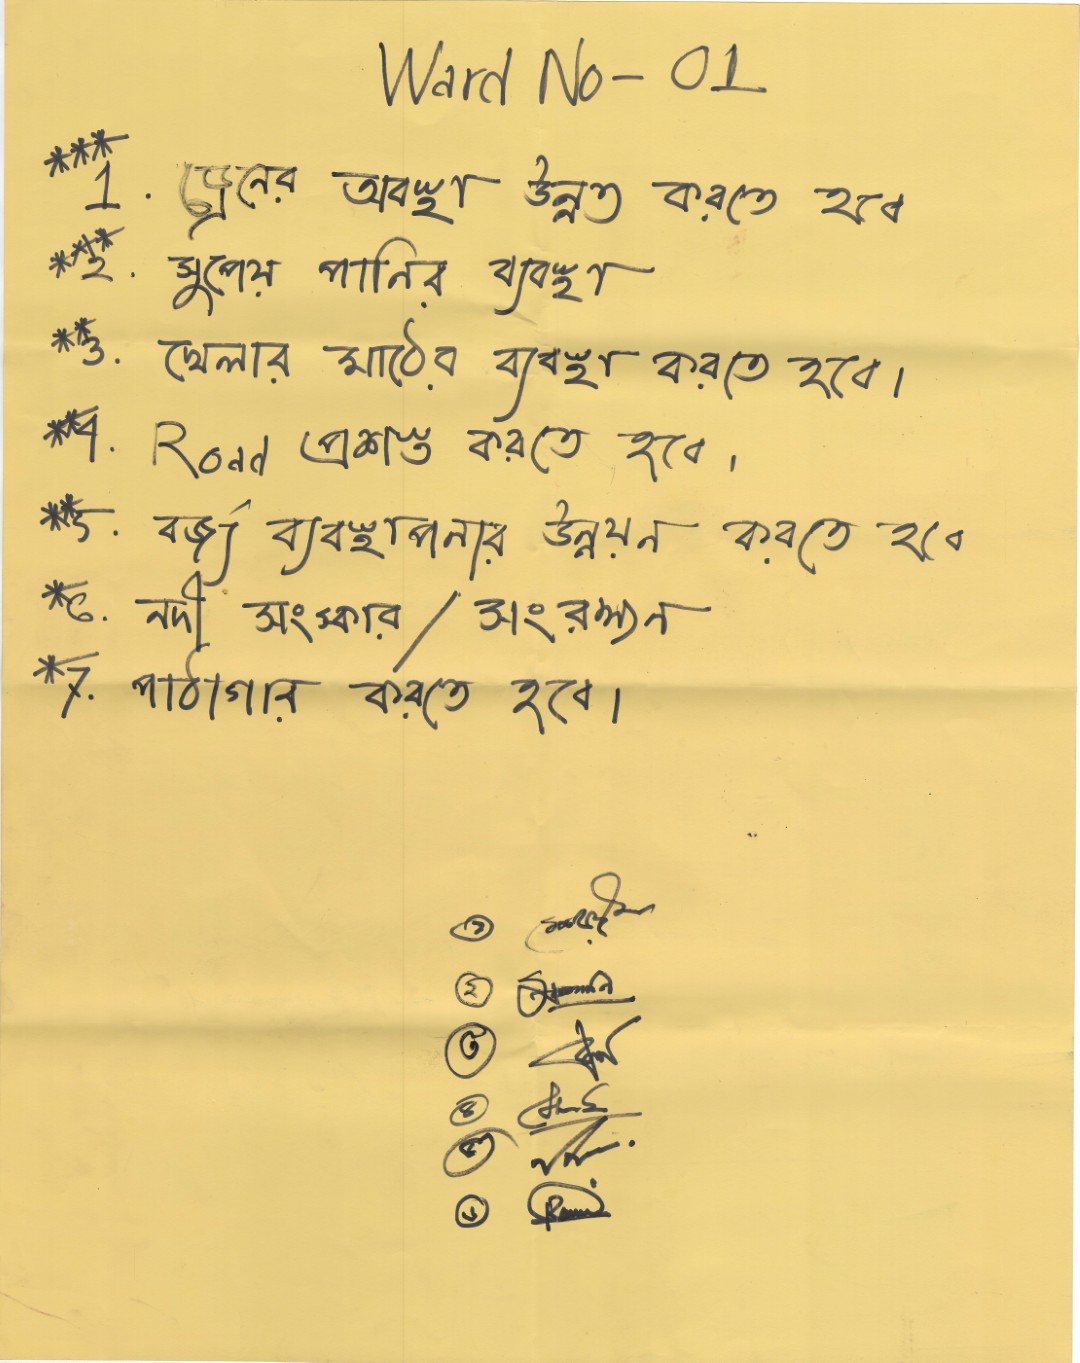 Ward No - 01
*** 1. ড্রেনের অবস্থা উন্নত করতে হবে
*** ২. সুপেয় পানির ব্যবস্থা
** ৩. খেলার মাঠের ব্যবস্থা করতে হবে।
** 4. Road প্রশস্ত করতে হবে।
** 5. বর্জ্য ব্যবস্থাপনার উন্নয়ন করতে হবে
* ৬. নদী সংস্কার / সংরক্ষন
* 7. পাঠাগার করতে হবে।
১
২
৩
৪
৫
৬